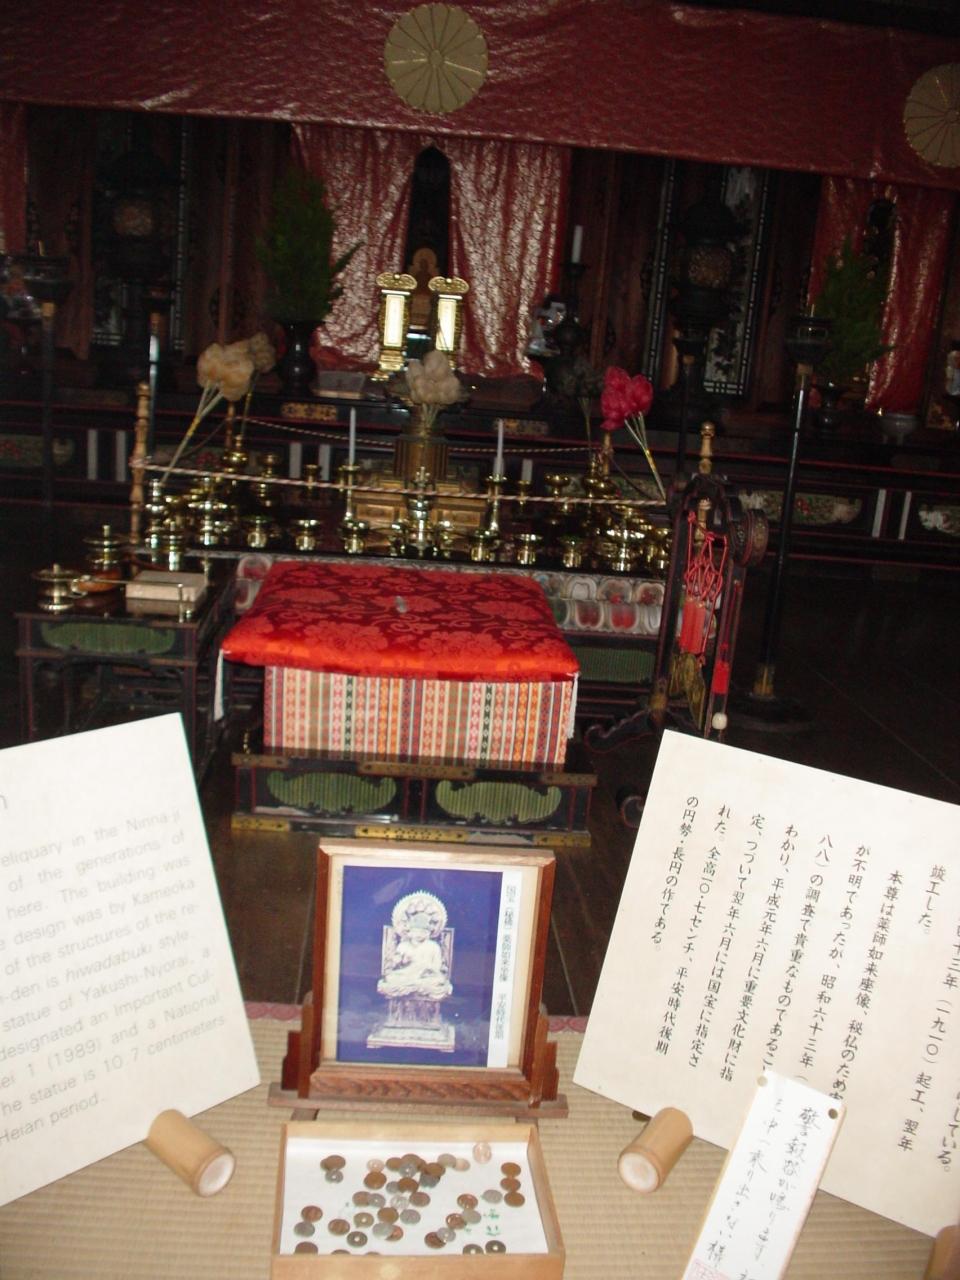 eliquary in the Ninna-ji
of the generations of
here. The building was
e design was by Kameoka
of the structures of the re-
-den is hiwadabuki style.
statue of Yakushi-Nyorai, a
designated an Important Cul-
ei 1 (1989) and a National
he statue is 10.7 centimeters
Heian period.
国宝（秘佛）薬師如来坐像 平安時代後期
している。
十三年（一九一〇）起工、翌年
竣工した。
本尊は薬師如来座像、秘仏のため
が不明であったが、昭和六十三年（
八八）の調査で貴重なものであるこ
わかり、平成元年六月に重要文化財に指
定、つづいて翌年六月には国宝に指定さ
れた。全高一〇・七センチ、平安時代後期
の円勢・長円の作である。
警報器が鳴ります、
乗り出さない様